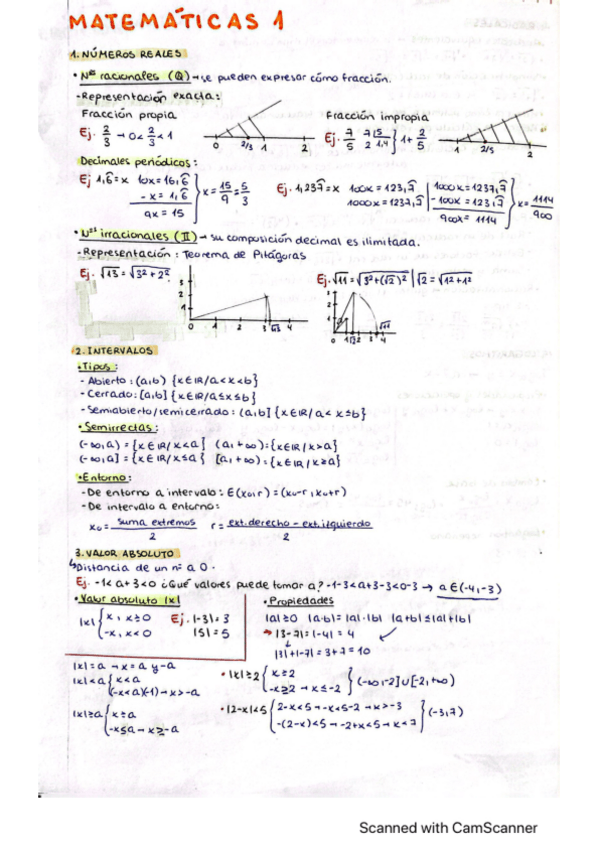 MATEMÁTICAS 1
1. NÚMEROS REALES
• Nºs racionales (Q) → se pueden expresar cómo fracción.
- Representación exacta:
Fracción propia
Fracción impropia
Ej. 2/3 → 0 < 2/3 < 1
0 2/3 1 2
Ej. 7/5 7 |5 2 1,4 } 1 + 2/5
1 2/5 2
Decimales periódicos:
Ej 1,6̂ = x 10x = 16,6̂ - x = 1,6̂ 9x = 15 } x = 15/9 = 5/3
Ej. 1,237̂ = x 100x = 123,7̂ 1000x = 1237,7̂ | 1000x = 1237,7̂ - 100x = 123,7̂ 900x = 1114 } x = 1114/900
• Nºs irracionales (II) → su composición decimal es ilimitada.
- Representación: Teorema de Pitágoras
Ej. √13 = √3²+2²
Ej. √11 = √3²+(√2)² | √2 = √1²+1²
3
2
1
0 1 2 3 √13 4
3
2
1
0 1 √2 2 3 √11 4
2. INTERVALOS
• Tipos:
- Abierto: (a,b) {x∈IR/a<x<b}
- Cerrado: [a,b] {x∈IR/a≤x≤b}
- Semiabierto/semicerrado: (a,b] {x∈IR/a<x≤b}
• Semirrectas:
(-∞,a) = {x∈IR/x<a} (a,+∞) = {x∈IR/x>a}
(-∞,a] = {x∈IR/x≤a} [a,+∞) = {x∈IR/x≥a}
• Entorno:
- De entorno a intervalo: E(x₀,r) = (x₀-r, x₀+r)
- De intervalo a entorno:
x₀ = suma extremos / 2 r = ext. derecho - ext. izquierdo / 2
3. VALOR ABSOLUTO
↳ Distancia de un nº a 0.
Ej. -1<a+3<0 ¿Qué valores puede tomar a? -1-3<a+3-3<0-3 → a∈(-4,-3)
• Valor absoluto |x|
|x| { x, x≥0 -x, x<0
Ej. |-3| = 3
|5| = 5
• Propiedades
|a|≥0 |a·b| = |a|·|b| |a+b|≤|a|+|b|
→ |3-7| = |-4| = 4
|3|+|-7| = 3+7 = 10
|x|=a → x=a y -a
|x|<a { x<a (-x<a)(-1) → x>-a
|x|≥a { x≥a -x≤a → x≥-a
• |x|≥2 { x≥2 -x≥2 → x≤-2 } (-∞,-2]∪[-2,+∞)
• |2-x|<5 { 2-x<5 → -x<5-2 → x>-3 -(2-x)<5 → -2+x<5 → x<7 } (-3,7)
Scanned with CamScanner